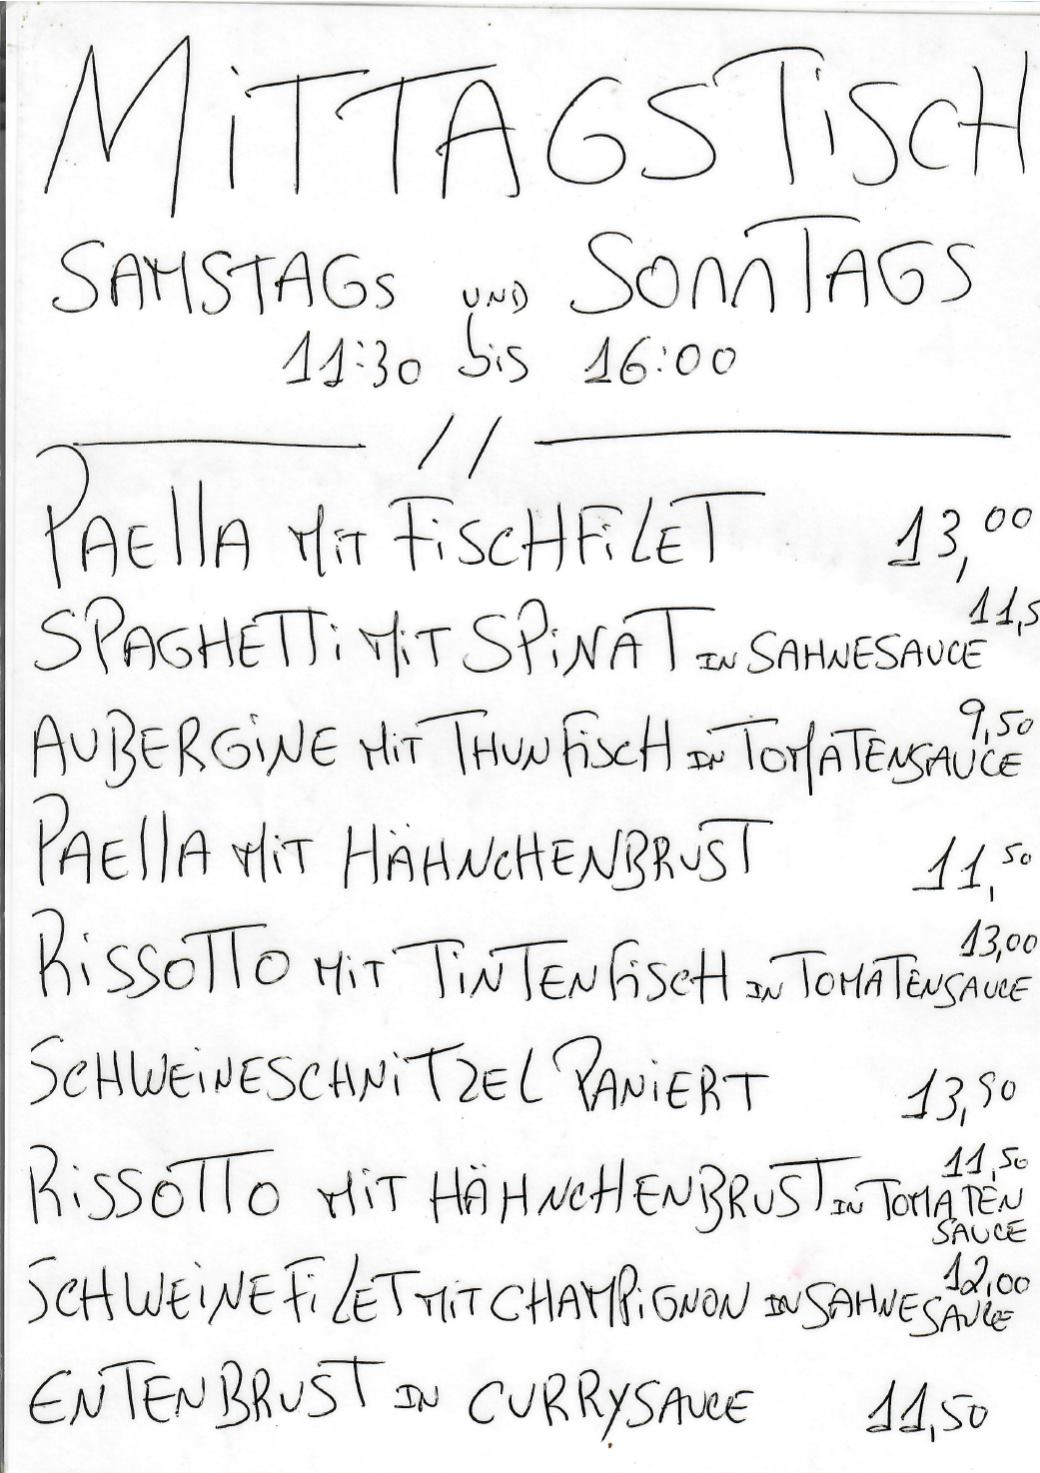 MiTTAGSTiSCH
SAMSTAGS UND SONNTAGS
11:30 bis 16:00
//
PAEllA MiT FiSCHFiLET 13,00
11,5
SPAGHETTi MiT SPiNAT IN SAHNESAUCE
9,50
AUBERGiNE MiT THUNFiSCH iN TOMATENSAUCE
PAEllA MiT HÄHNCHENBRUST 11,50
13,00
RiSSOTTO MiT TiNTENFiSCH IN TOMATENSAUCE
SCHWEiNESCHNiTZEL PANiERT 13,50
11,50
RiSSOTTO MiT HÄHNCHENBRUST IN TOMATEN
SAUCE
12,00
SCHWEiNEFiLET MiT CHAMPiGNON IN SAHNESAUCE
ENTENBRUST IN CURRYSAUCE 11,50